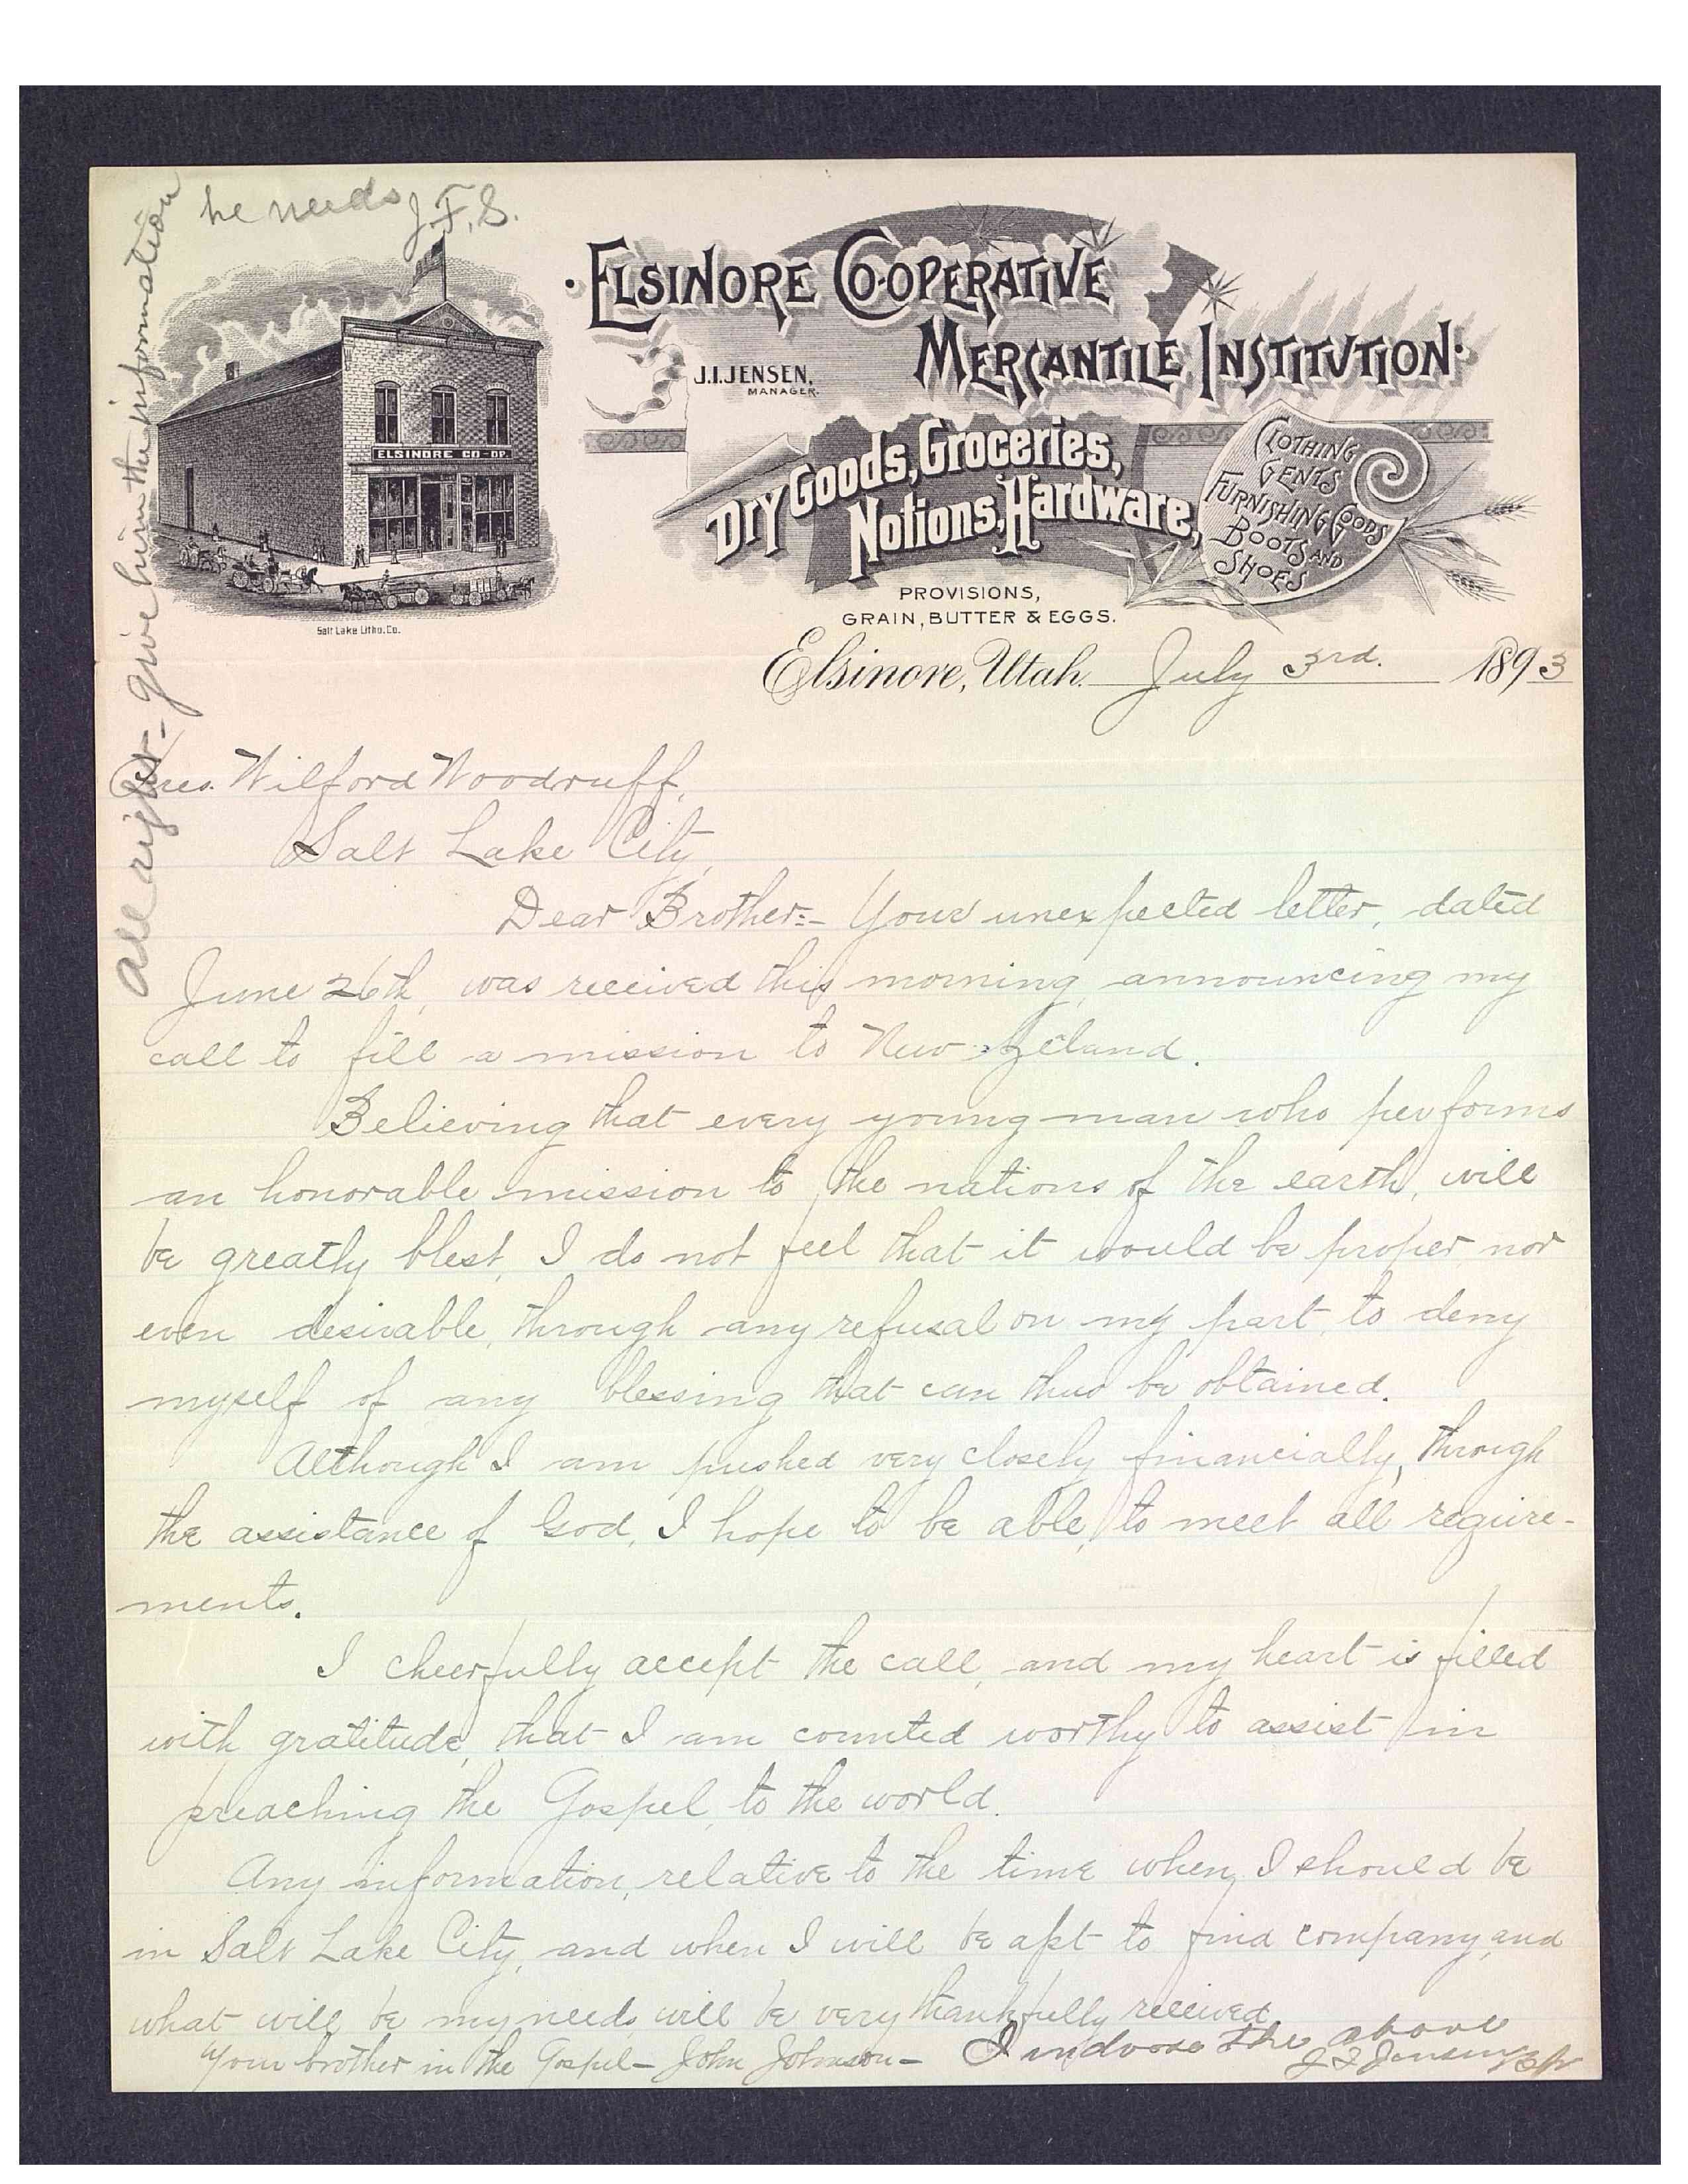 All right - give him the information
he needs J.F.S.
ELSINORE CO-OPERATIVE
MERCANTILE INSTITUTION.
J.I. JENSEN,
MANAGER.
ELSINORE CO-OP.
Dry Goods, Groceries,
Notions, Hardware,
CLOTHING
GENTS
FURNISHING GOODS
BOOTS AND
SHOES
PROVISIONS,
GRAIN, BUTTER & EGGS.
Salt Lake Litho. Co.
Elsinore, Utah. July 3rd. 1893
Pres. Wilford Woodruff,
Salt Lake City,
Dear Brother:- Your unexpected letter, dated
June 26th, was received this morning, announcing my
call to fill a mission to New Zeland.
Believing that every young man who performs
an honorable mission to the nations of the earth, will
be greatly blest, I do not feel that it would be proper, nor
even desirable, through any refusal on my part, to deny
myself of any blessing that can thus be obtained.
Although I am pushed very closely financially, through
the assistance of God, I hope to be able, to meet all require-
ments.
I cheerfully accept the call, and my heart is filled
with gratitude, that I am counted worthy to assist in
preaching the Gospel, to the world.
Any information, relative to the time when, I should be
in Salt Lake City, and when I will be apt to find company, and
what will be my needs, will be very thankfully received.
Your brother in the Gospel - John Johnson -
I indorse the above
J I Jensen Bp